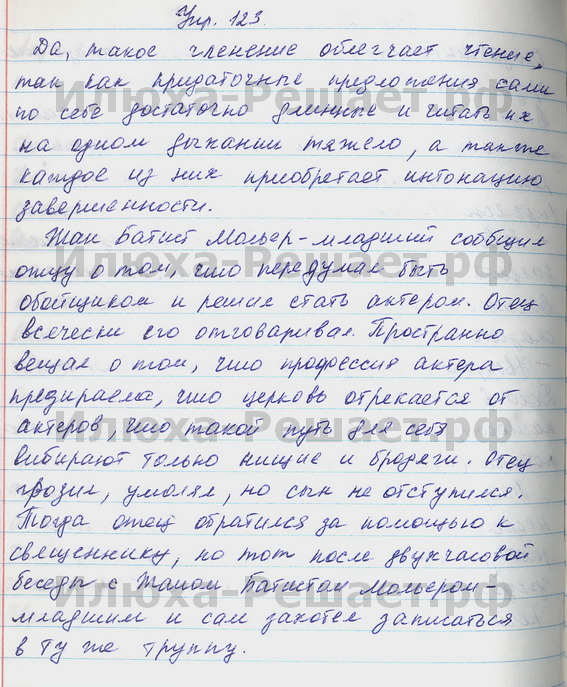 Упр. 123.
Да, такое членение облегчает чтение,
так как придаточные предложения сами
по себе достаточно длинные и читать их
на одном дыхании тяжело, а также
каждое из них приобретает интонацию
завершенности.
Жан Батист Мольер-младший сообщил
отцу о том, что передумал быть
обойщиком и решил стать актером. Отец
всячески его отговаривал. Пространно
вещал о том, что профессия актера
презираема, что церковь отрекается от
актеров, что такой путь для себя
выбирают только нищие и бродяги. Отец
грозил, умолял, но сын не отступился.
Тогда отец обратился за помощью к
священнику, но тот после двухчасовой
беседы с Жаном Батистом Мольером-
младшим и сам захотел записаться
в ту же труппу.
Илюха-Решает.рф
Илюха-Решает.рф
Илюха-Решает.рф
Илюха-Решает.рф